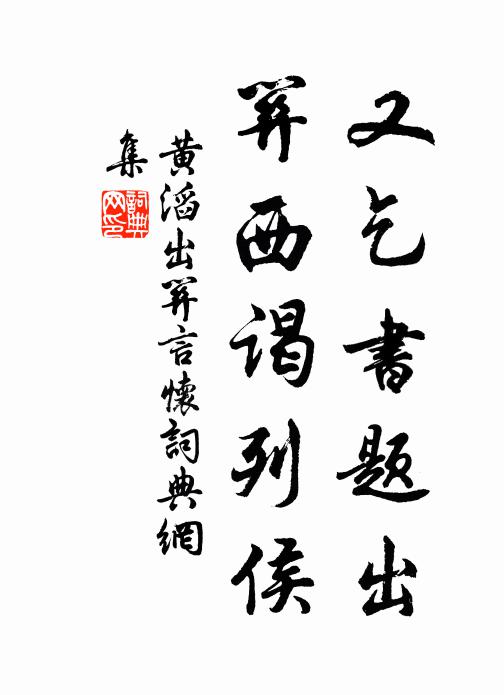 又乞書題出
關西謁列侯
黃滔出關言懷詞典網
集
詞典
网印